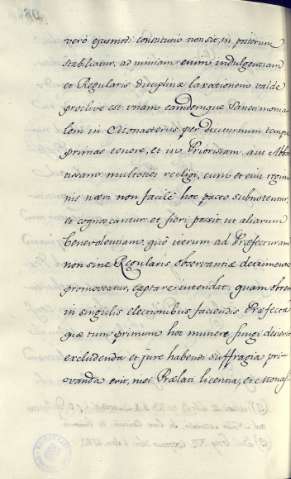 verò ejusmodi consuetudo non sit, in posterum
stabilitur, ad nimiam enim indulgentiam
et Regularis disciplinæ laxationem valde
proclive est, unam eamdemque Sanctimonia-
lem in Monasterijs per diuturnum tempus
primas tenere, et in Priorissam, aut Abba-
tissam multoties reeligi, cum et eius regimi-
nis non facilè hoc pacto
et fieri possit ut aliarum
benevolentiam, quò iterum ad Præfecturam
non sine Regularis observantiæ detrimento
promoveatur, captare contendat, quamobrem
in singulis electionibus faciendis Præfecta
quæ tum primum hoc munere fungi desierit
excludenda et jure habendi suffragia pri-
vanda erit, nisi Prælati licentia, et